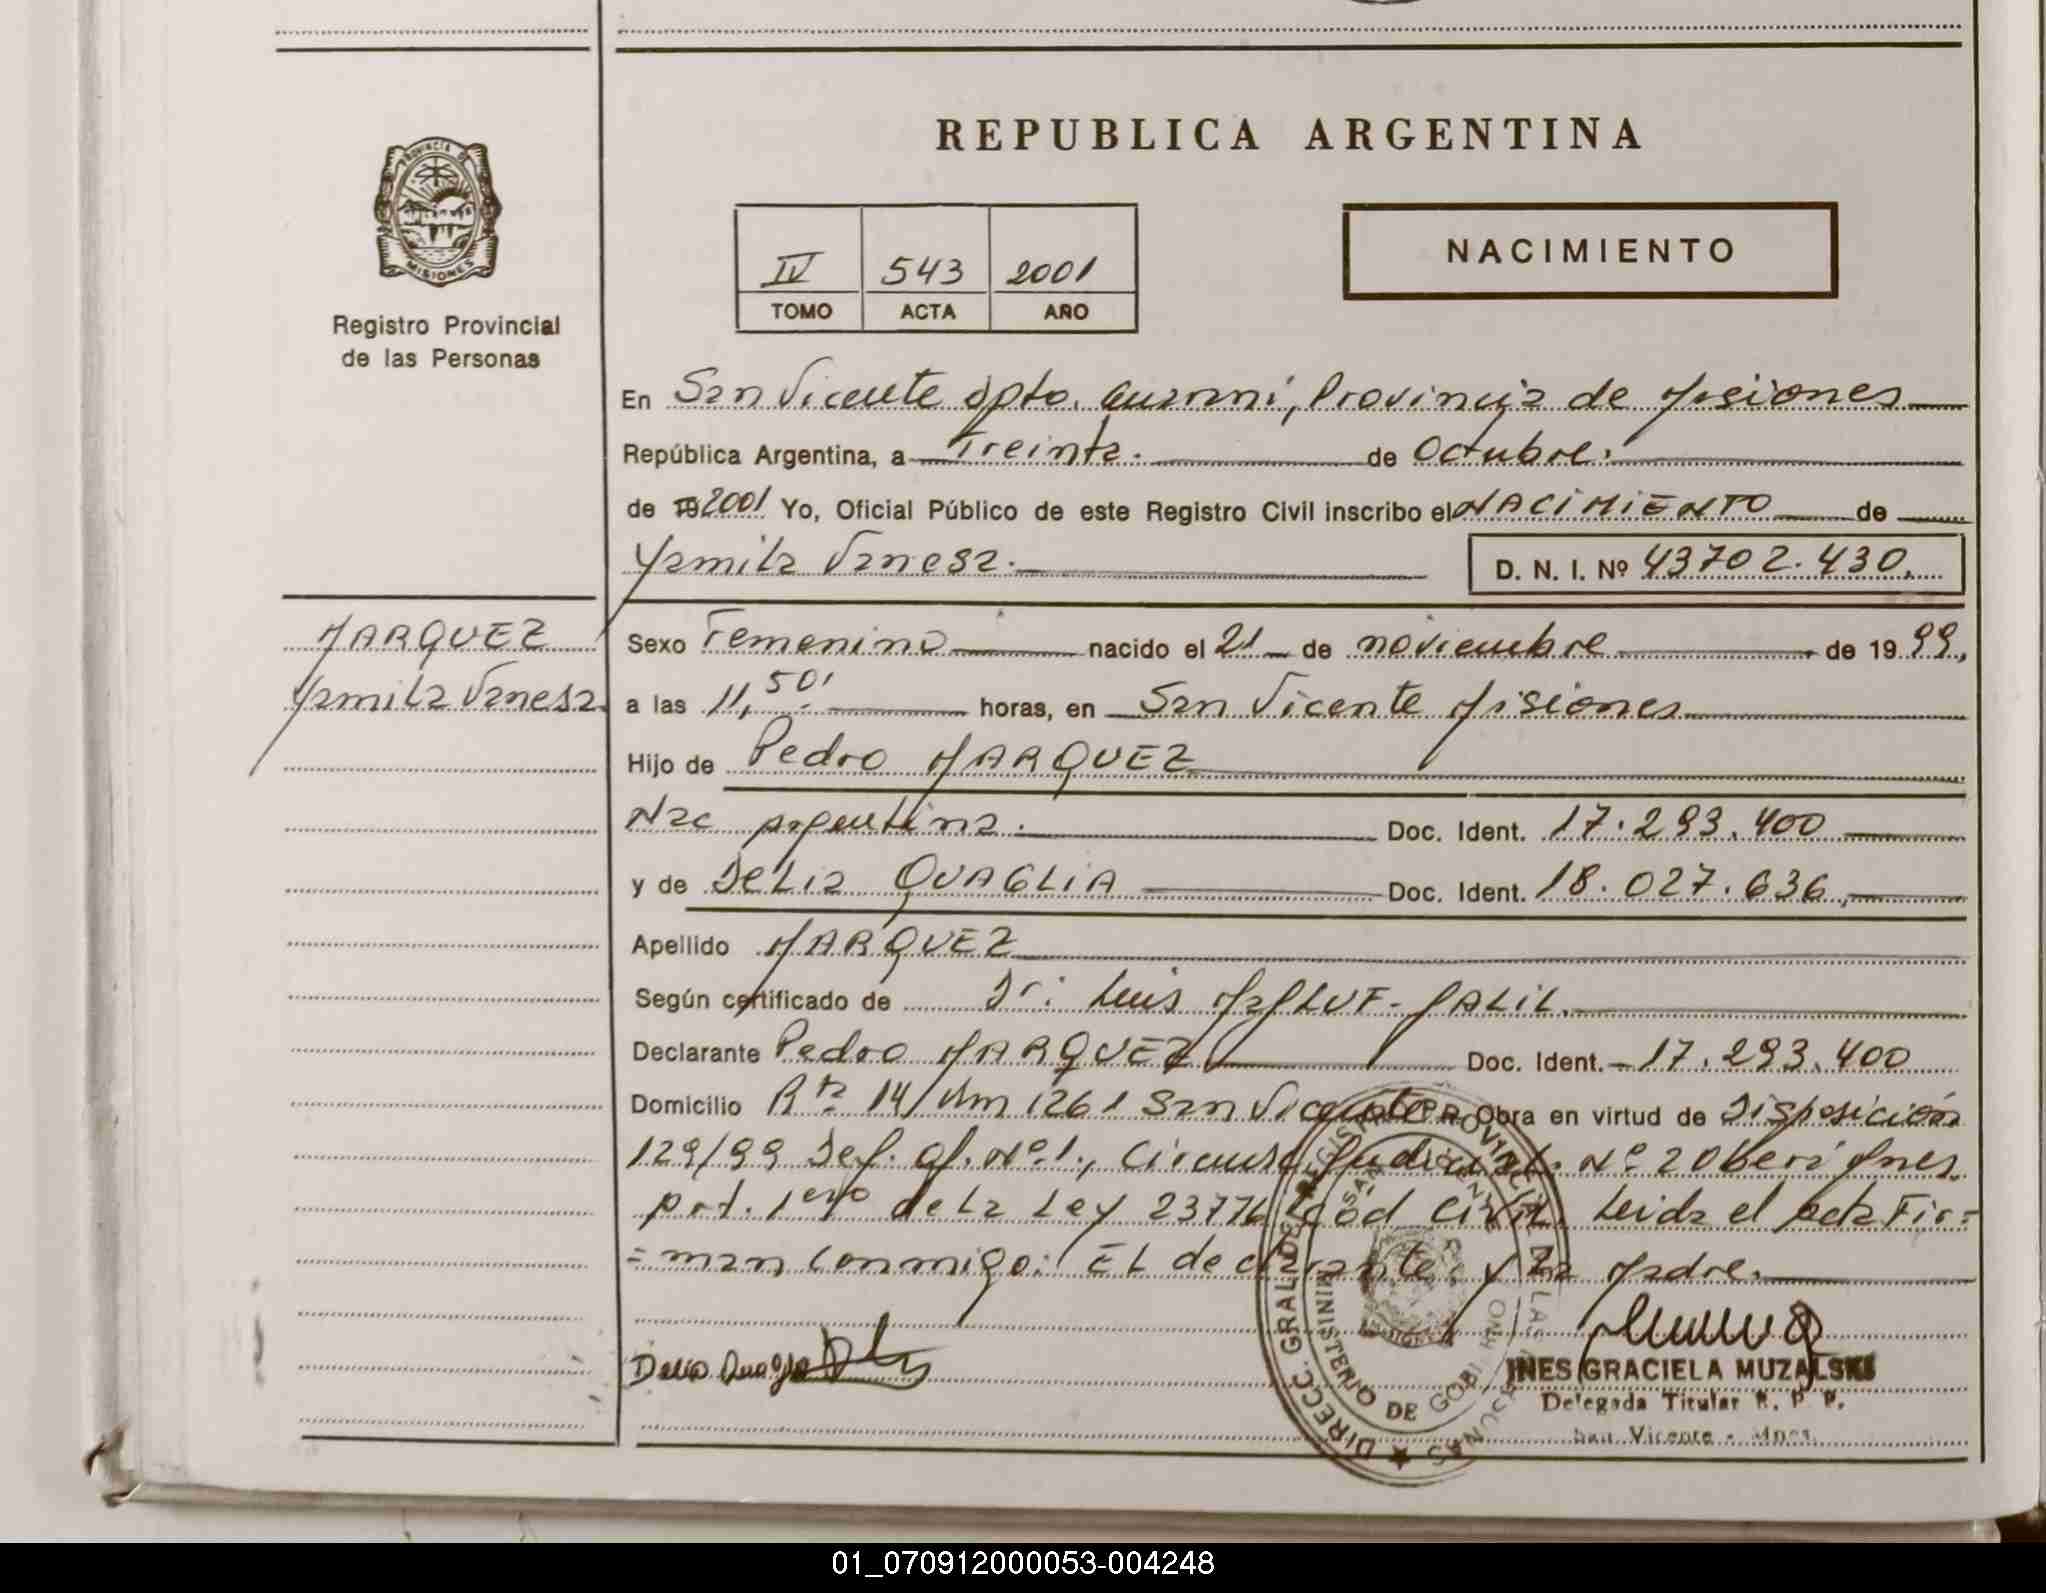 REPUBLICA ARGENTINA
PROVINCIA DE
MISIONES
Registro Provincial
de las Personas
IV 543 2001
TOMO ACTA AÑO
NACIMIENTO
En San Vicente Dpto. Guarani, Provincia de Misiones
República Argentina, a Treinta. de Octubre.
de 19 2001 Yo, Oficial Público de este Registro Civil inscribo el NACIMIENTO de
Yamila Vanesa. D. N. I. Nº 43702.430.
MARQUEZ
Yamila Vanesa.
Sexo Femenino nacido el 21 de noviembre de 19 99,
a las 11,50' horas, en San Vicente Misiones
Hijo de Pedro MARQUEZ
Nac argentina. Doc. Ident. 17.293.400
y de DeLia QUAGLIA Doc. Ident. 18.027.636,
Apellido MARQUEZ
Según certificado de Dr: Luis MALLUF-JALIL.
Declarante Pedro MARQUEZ Doc. Ident. 17.293.400
Domicilio Rta 14 Km 1261 San Vicente Obra en virtud de Disposición
129/99 Def. Of. Nº1., Circuns. Judicial. Nº 2 Obera Mnes.
Art. 1ero de la Ley 23776 Cód Civil. Leida el acta Fir=
=man Conmigo: EL declarante y La Madre.
Delia Quaglia
INES GRACIELA MUZALSKI
Delegada Titular R. P. P.
San Vicente - Mnes.
DIRECC. GRAL. DE REGISTRO PROVINCIAL DE LAS PERSONAS
MINISTERIO DE GOBIERNO
SAN VICENTE
01_070912000053-004248